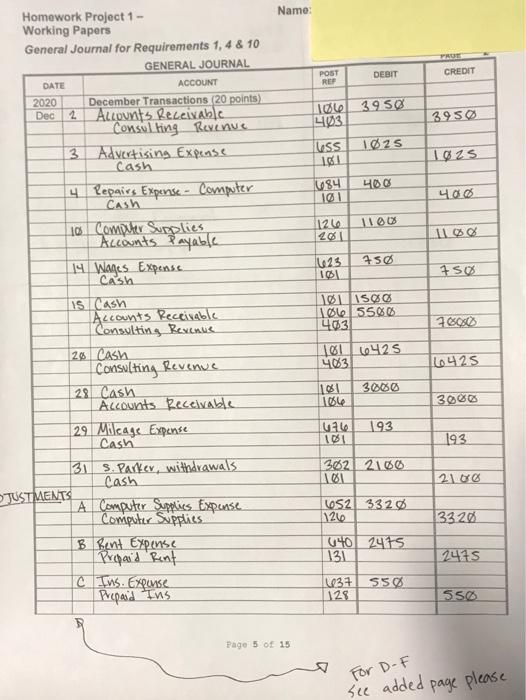 Homework Project 1 –
Name:
Working Papers
General Journal for Requirements 1, 4 & 10
GENERAL JOURNAL PAGE 2
DATE ACCOUNT POST REF DEBIT CREDIT
2020 December Transactions (20 points)
Dec 2 Accounts Receivable 106 3950
Consulting Revenue 403 3950
3 Advertising Expense 655 1025
Cash 101 1025
4 Repairs Expense - Computer 684 400
Cash 101 400
10 Computer Supplies 126 1100
Accounts Payable 201 1100
14 Wages Expense 623 750
Cash 101 750
15 Cash 101 1500
Accounts Receivable 106 5500
Consulting Revenue 403 7000
20 Cash 101 6425
Consulting Revenue 403 6425
28 Cash 101 3000
Accounts Receivable 106 3000
29 Mileage Expense 676 193
Cash 101 193
31 S. Parker, withdrawals 302 2100
Cash 101 2100
DJUSTMENTS
A Computer Supplies Expense 652 3320
Computer Supplies 126 3320
B Rent Expense 640 2475
Prepaid Rent 131 2475
C Ins. Expense 637 550
Prepaid Ins 128 550
D
Page 5 of 15
For D-F
See added page please